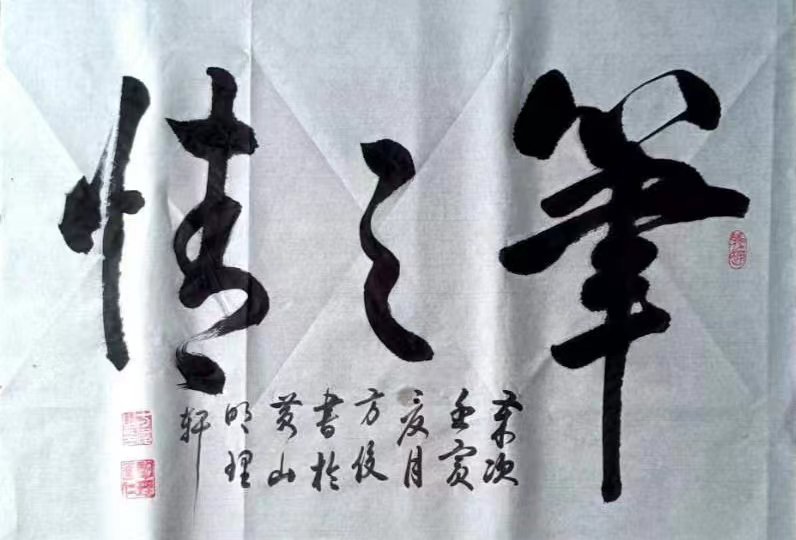 筆之情
歲次
壬寅
夏月
方俊
書於
黃山
明理
軒